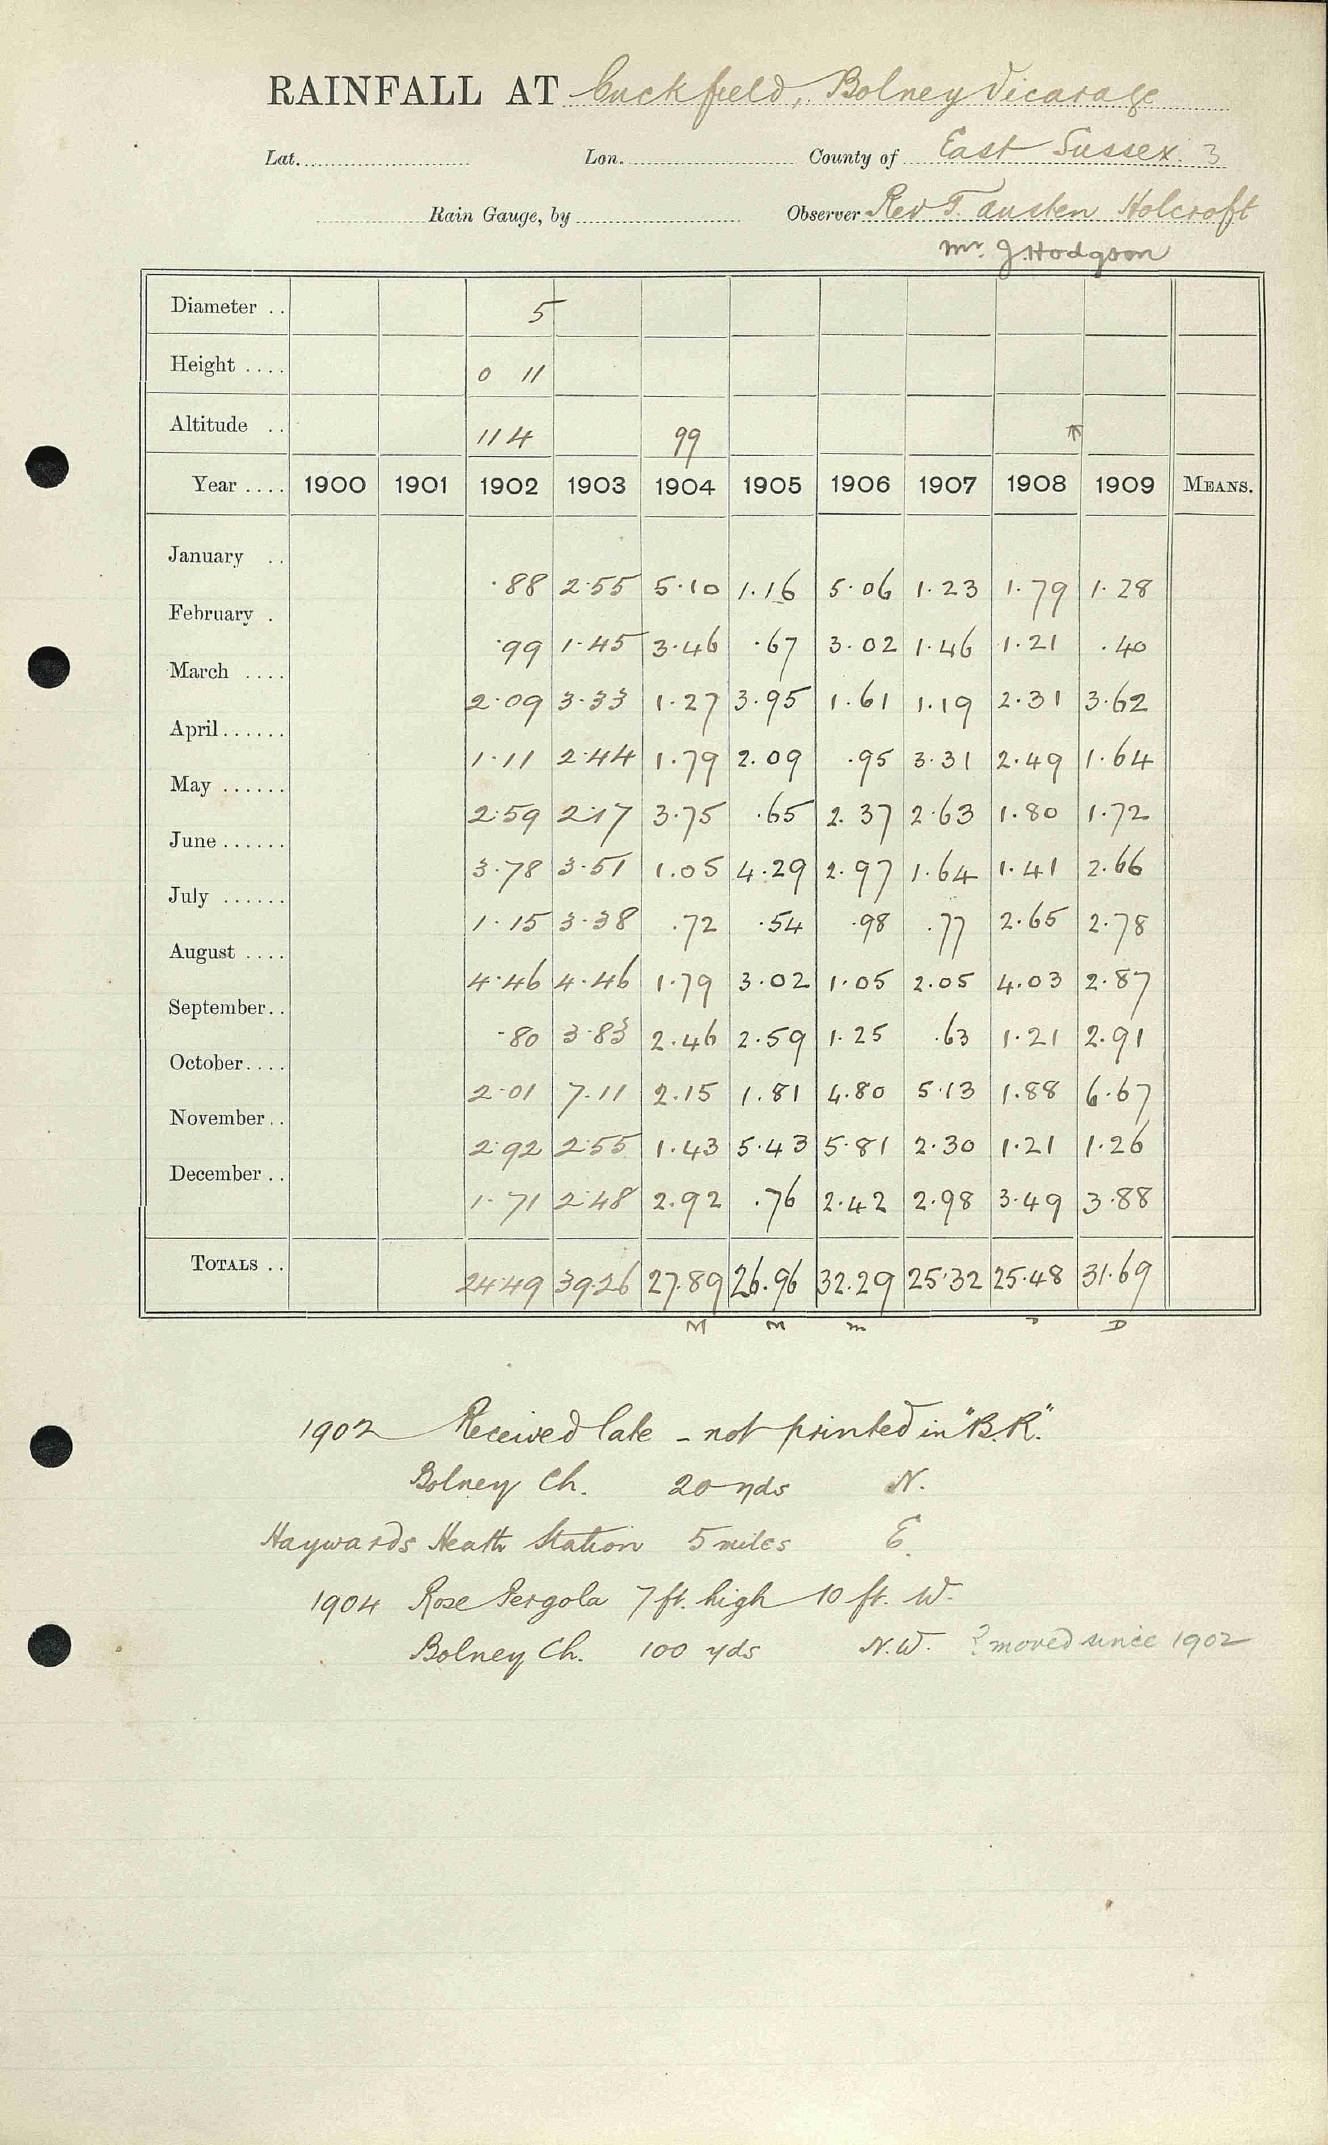 RAINFALL AT Cuckfield, Bolney Vicarage
Lat. Lon. County of East Sussex. 3
Rain Gauge, by Observer Rev T. Austen Holcroft
Mr. J. Hodgson
Diameter .. 5
Height .... 0 11
Altitude .. 114 99
Year .... 1900 1901 1902 1903 1904 1905 1906 1907 1908 1909 MEANS.
January .. .88 2.55 5.10 1.16 5.06 1.23 1.79 1.28
February . .99 1.45 3.46 .67 3.02 1.46 1.21 .40
March .... 2.09 3.33 1.27 3.95 1.61 1.19 2.31 3.62
April...... 1.11 2.44 1.79 2.09 .95 3.31 2.49 1.64
May ...... 2.59 2.17 3.75 .65 2.37 2.63 1.80 1.72
June...... 3.78 3.51 1.05 4.29 2.97 1.64 1.41 2.66
July ...... 1.15 3.38 .72 .54 .98 .77 2.65 2.78
August .... 4.46 4.46 1.79 3.02 1.05 2.05 4.03 2.87
September.. .80 3.83 2.46 2.59 1.25 .63 1.21 2.91
October.... 2.01 7.11 2.15 1.81 4.80 5.13 1.88 6.67
November.. 2.92 2.55 1.43 5.43 5.81 2.30 1.21 1.26
December .. 1.71 2.48 2.92 .76 2.42 2.98 3.49 3.88
TOTALS .. 24.49 39.26 27.89 26.96 32.29 25.32 25.48 31.69
M m m D
1902 Received late - not printed in "B.R."
Bolney Ch. 20 yds N.
Haywards Heath Station 5 miles E.
1904 Rose Pergola 7 ft. high 10 ft. W.
Bolney Ch. 100 yds N.W. ? moved since 1902